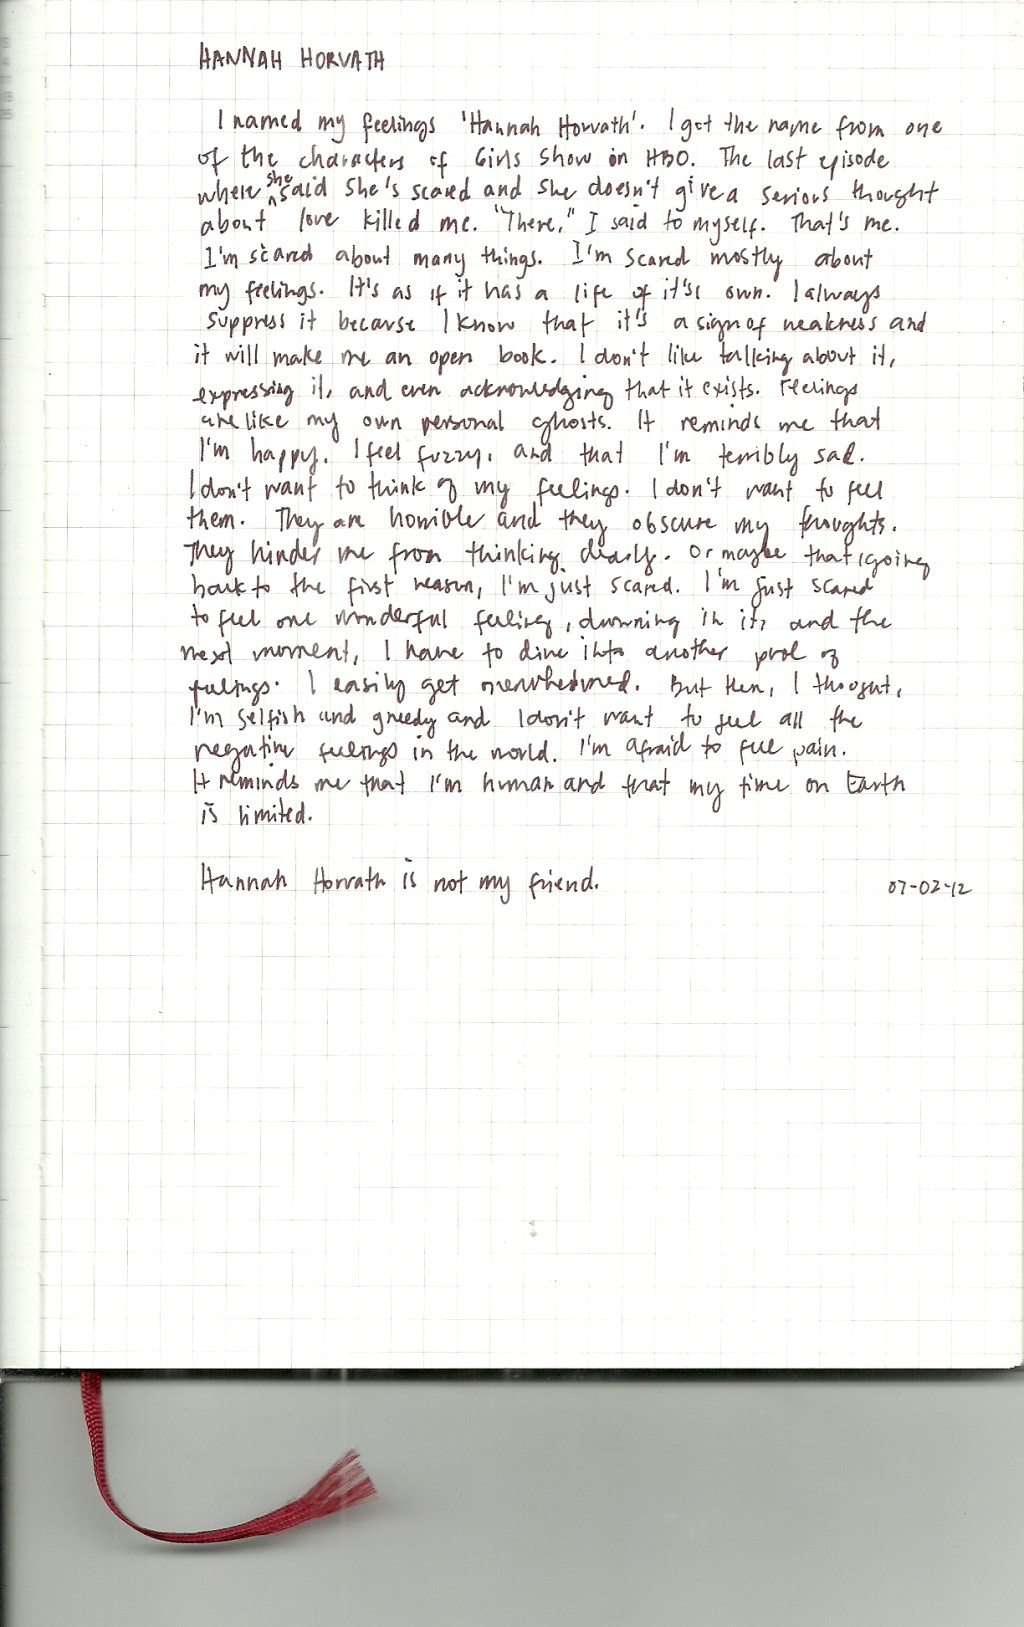 HANNAH HORVATH
I named my feelings 'Hannah Horvath'. I got the name from one
of the characters of Girls Show on HBO. The last episode
where she said she's scared and she doesn't give a serious thought
about love killed me. "There," I said to myself. That's me.
I'm scared about many things. I'm scared mostly about
my feelings. It's as if it has a life of it's own. I always
suppress it because I know that it's a sign of weakness and
it will make me an open book. I don't like talking about it,
expressing it, and even acknowledging that it exists. Feelings
are like my own personal ghosts. It reminds me that
I'm happy, I feel fuzzy, and that I'm terribly sad.
I don't want to think of my feelings. I don't want to feel
them. They are horrible and they obscure my thoughts.
They hinder me from thinking clearly. Or maybe that, going
back to the first reason, I'm just scared. I'm just scared
to feel one wonderful feeling, drowning in it, and the
next moment, I have to dive into another pool of
feelings. I easily get overwhelmed. But then, I thought,
I'm selfish and greedy and I don't want to feel all the
negative feelings in the world. I'm afraid to feel pain.
It reminds me that I'm human and that my time on Earth
is limited.
Hannah Horvath is not my friend.
07-02-12